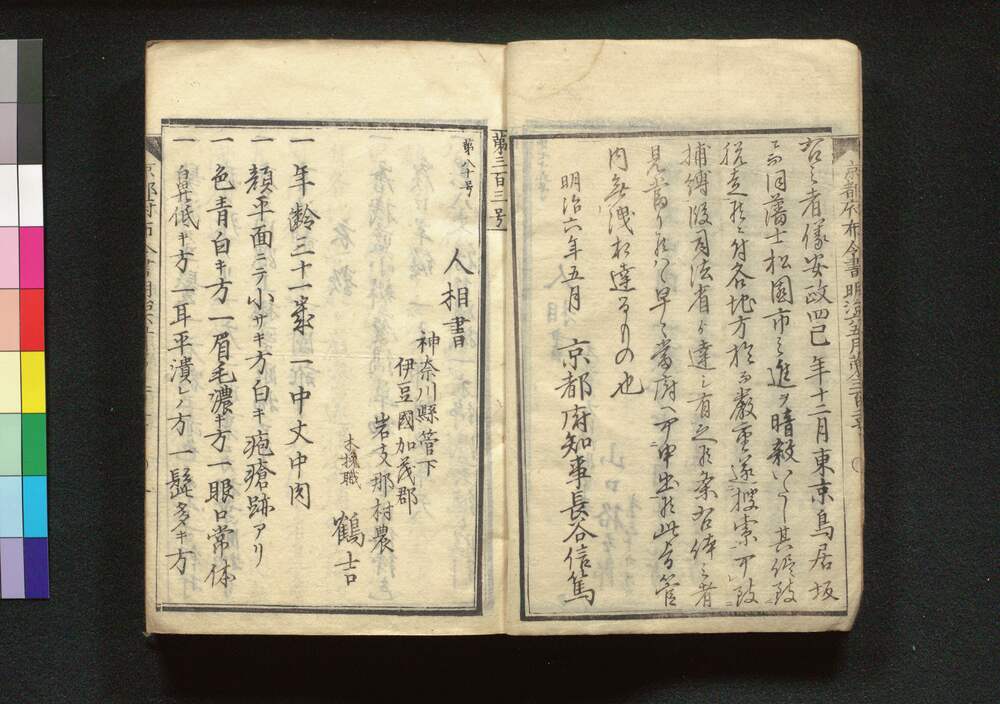 右之者儀安政四巳年十二月東京鳥居坂
ニ而同藩士松園市之進ヲ暗殺いたし其侭致
脱走候ニ付各地方於而厳重遂捜索可致
捕縛段司法省ゟ達シ有之候条右体之者
見当り候ハヽ早々当府ヘ可申出候此旨管
内無洩相達るもの也
明治六年五月 京都府知事長谷信篤
第三百三号
第八十号
人相書
神奈川縣管下
伊豆國加茂郡
岩支那村農
木挽職
鶴吉
一年齢三十一歳 一中丈中肉
一顔平面ニテ小サキ方白キ疱瘡跡アリ
一色青白キ方一眉毛濃キ方一眼口常体
一鼻低キ方一耳平潰レノ方一髭多キ方